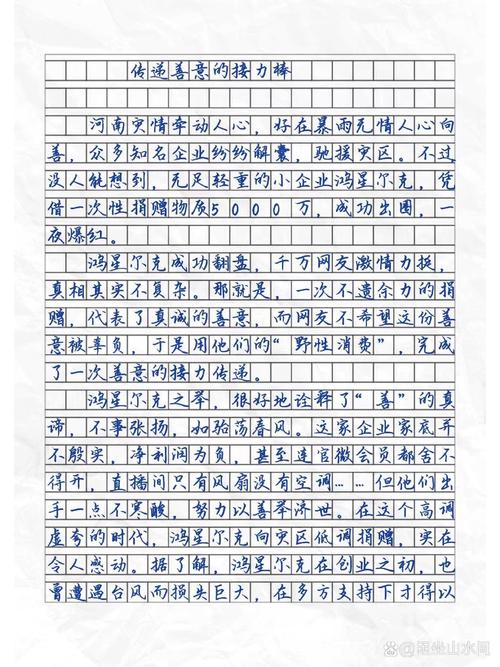 传递善意的接力棒
河南灾情牵动人心，好在暴雨无情人心向
善，众多知名企业纷纷解囊，驰援灾区。不过
没人能想到，无足轻重的小企业鸿星尔克，凭
借一次性捐赠物质5000万，成功出圈，一
夜爆红。
鸿星尔克成功翻盘，千万网友激情力挺，
真相其实不复杂。那就是，一次不遗余力的捐
赠，代表了真诚的善意，而网友不希望这份善
意被辜负，于是用他们的“野性消费”，完成
了一次善意的接力传递。
鸿星尔克之举，很好地诠释了“善”的真
谛，不事张扬，如骀荡春风。这家企业家底并
不殷实，净利润为负，甚至连官微会员都舍不
得开，直播间只有风扇没有空调……但他们出
手一点不寒酸，努力以善举济世。在这个高调
虚夸的时代，鸿星尔克向灾区低调捐赠，实在
令人感动。据了解，鸿星尔克在创业之初，也
曾遭遇台风而损失巨大，在多方支持下才得以
@闲坐山水间